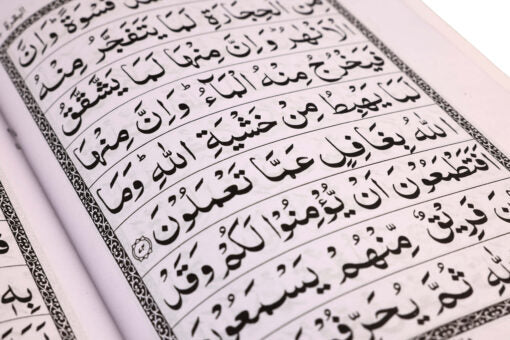 قسوة وان
من الحجارة لما يتفجر منه
الانهر وان منها لما يشقق
فيخرج منه الماء وان منها
لَمَا يَهْبِطُ مِنْ خَشْيَةِ اللّٰهِ وَمَا
اللّٰهُ بِغَافِلٍ عَمَّا تَعْمَلُوْنَ
اَفَتَطْمَعُوْنَ اَنْ يُّؤْمِنُوْا لَكُمْ وَقَدْ
فَرِيْقٌ مِّنْهُمْ يَسْمَعُوْنَ
اللّٰهِ ثُمَّ يُحَرِّفُ
بِهٖ